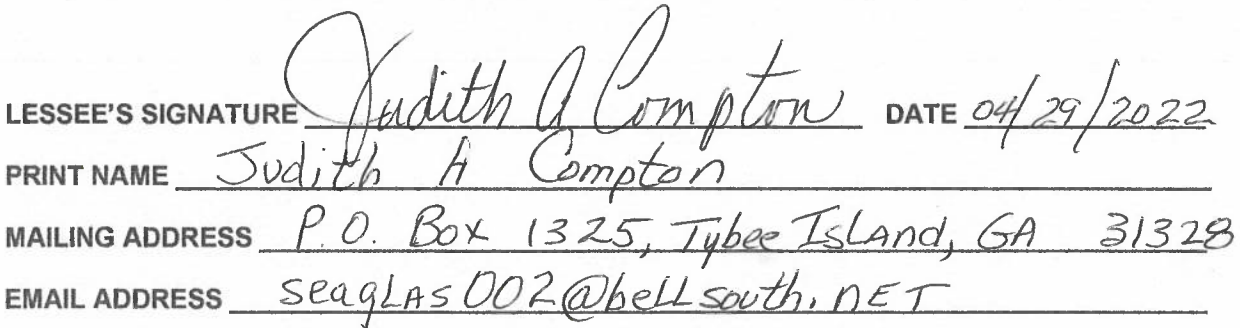 LESSEE'S SIGNATURE Judith A Compton DATE 04/29/2022
PRINT NAME Judith A Compton
MAILING ADDRESS P.O. Box 1325, Tybee IsLAnd, GA 31328
EMAIL ADDRESS seagLAs002@beLLsouth.nET